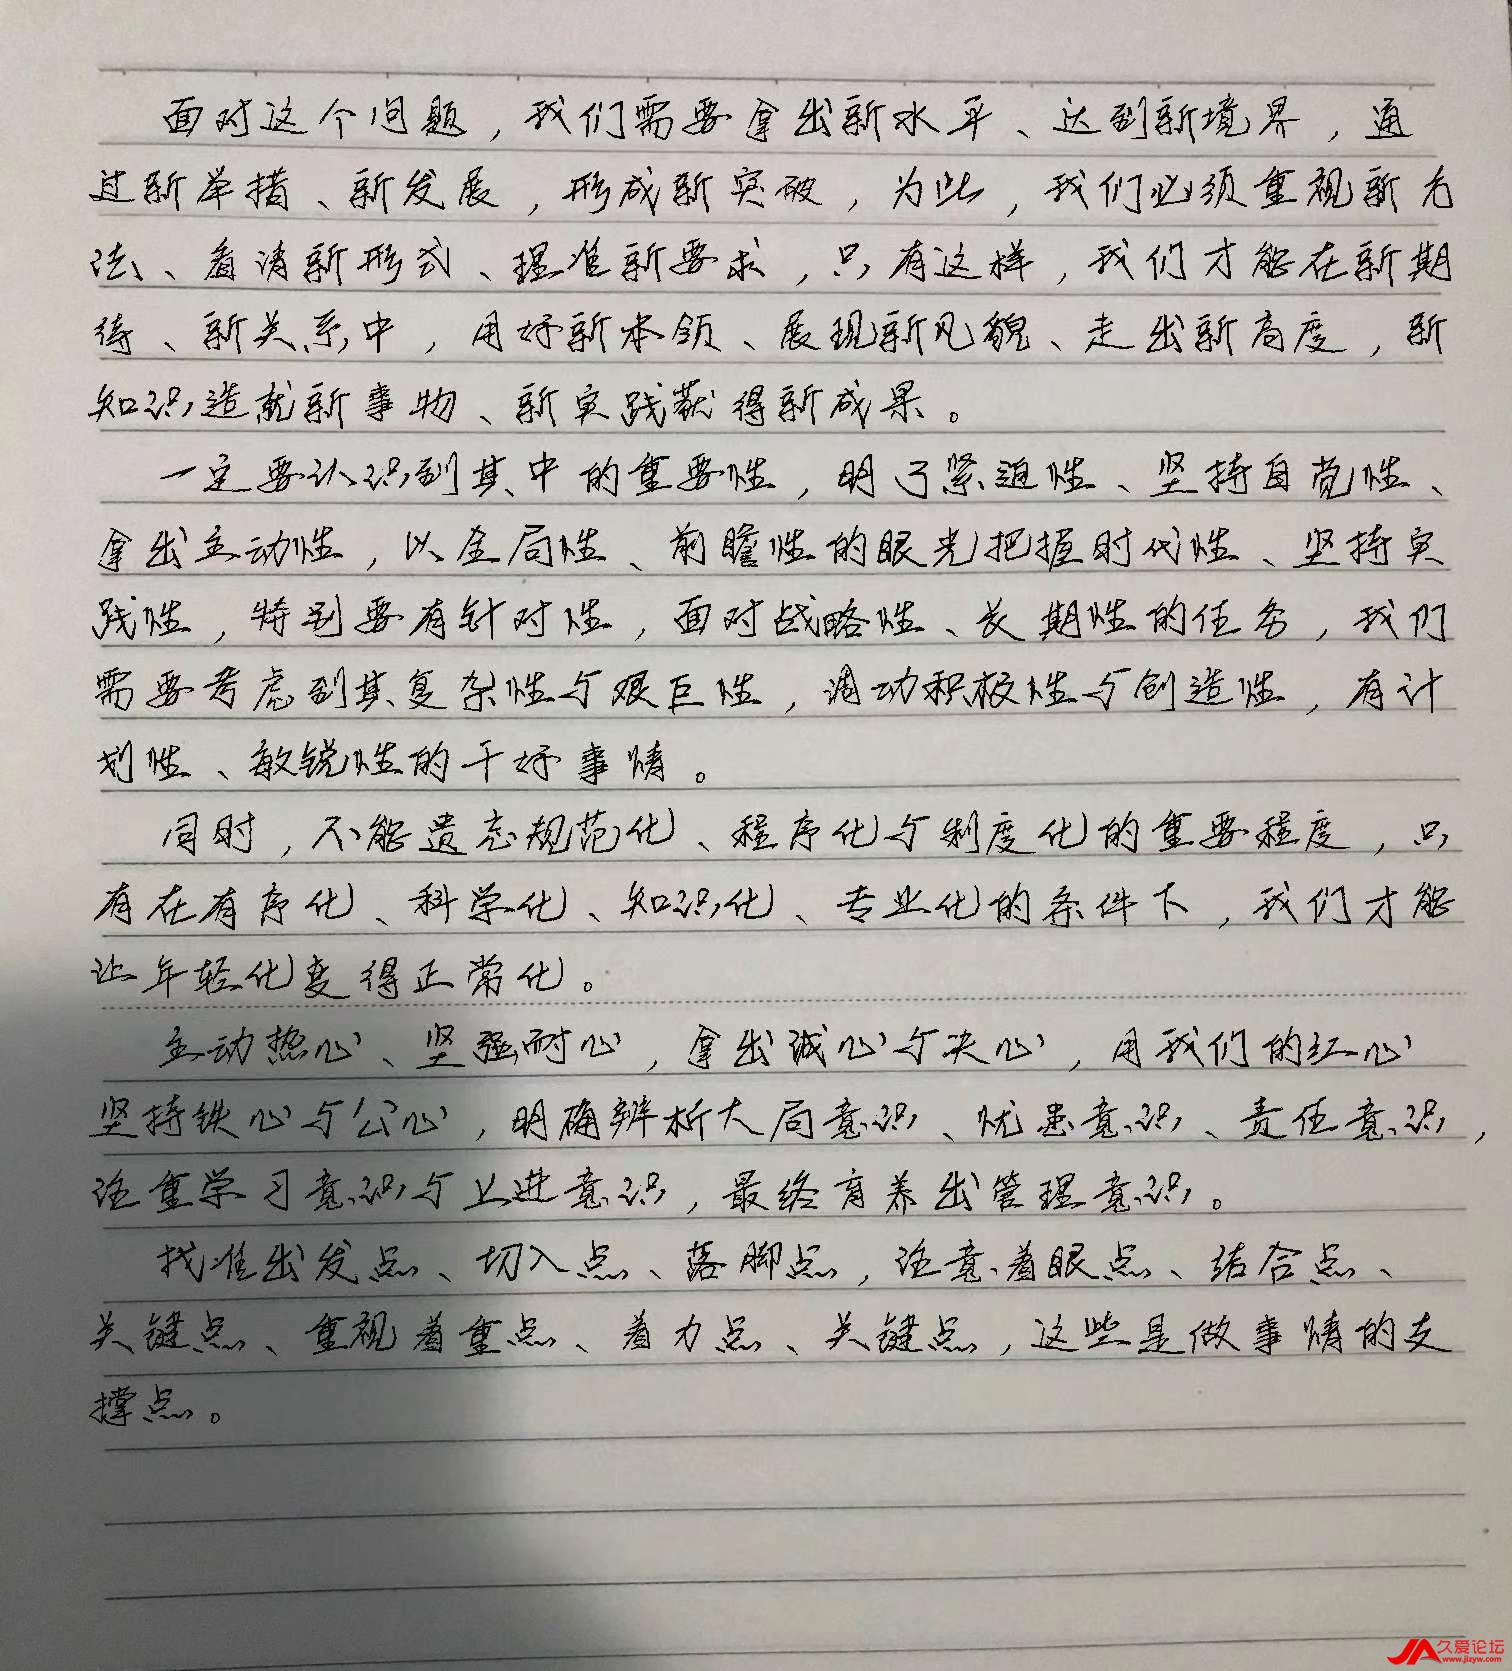 面对这个问题，我们需要拿出新水平、达到新境界，通
过新举措、新发展，形成新突破，为此，我们必须重视新方
法、看清新形式、理准新要求，只有这样，我们才能在新期
待、新关系中，用好新本领、展现新风貌、走出新高度，新
知识造就新事物、新实践获得新成果。
一定要认识到其中的重要性，明了紧迫性、坚持自觉性、
拿出主动性，以全局性、前瞻性的眼光把握时代性、坚持实
践性，特别要有针对性，面对战略性、长期性的任务，我们
需要考虑到其复杂性与艰巨性，调动积极性与创造性，有计
划性、敏锐性的干好事情。
同时，不能遗忘规范化、程序化与制度化的重要程度，只
有在有序化、科学化、知识化、专业化的条件下，我们才能
让年轻化变得正常化。
主动热心、坚强耐心，拿出诚心与决心，用我们的红心
坚持铁心与公心，明确辨析大局意识、忧患意识、责任意识，
注重学习意识与上进意识，最终育养出管理意识。
找准出发点、切入点、落脚点，注意着眼点、结合点、
关键点、重视着重点、着力点、关键点，这些是做事情的支
撑点。
久爱论坛
www.jizyw.com